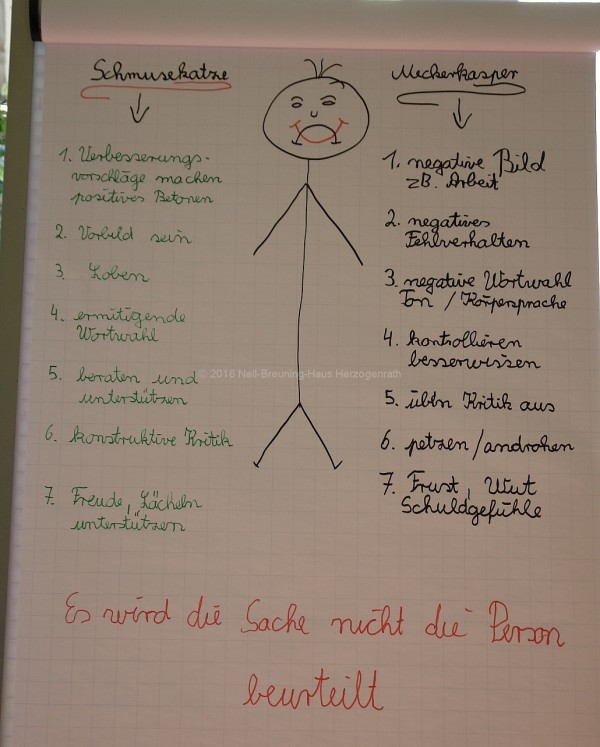 Schmusekatze
1. Verbesserungs-
vorschläge machen
positives Betonen
2. Vorbild sein
3. Loben
4. ermitigende
Wortwahl
5. beraten und
unterstützen
6. konstruktive Kritik
7. Freude, Lächeln
unterstützen
Meckerkasper
1. negative Bild
zB. Arbeit
2. negatives
Fehlverhalten
3. negative Wortwahl
Ton / Körpersprache
4. kontrollieren
besserwissen
5. übln Kritik aus
6. petzen / androhen
7. Frust, Wut
Schuldgefühle
© 2016 Nell-Breuning-Haus Herzogenrath
Es wird die Sache nicht die Person
beurteilt